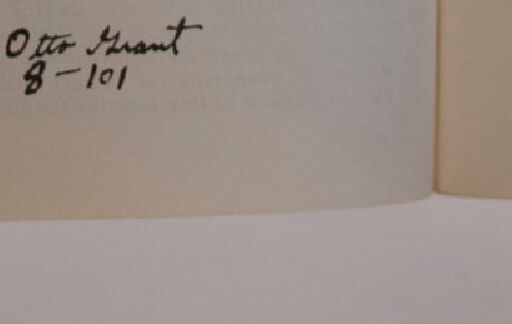 Otto Grant
8-101